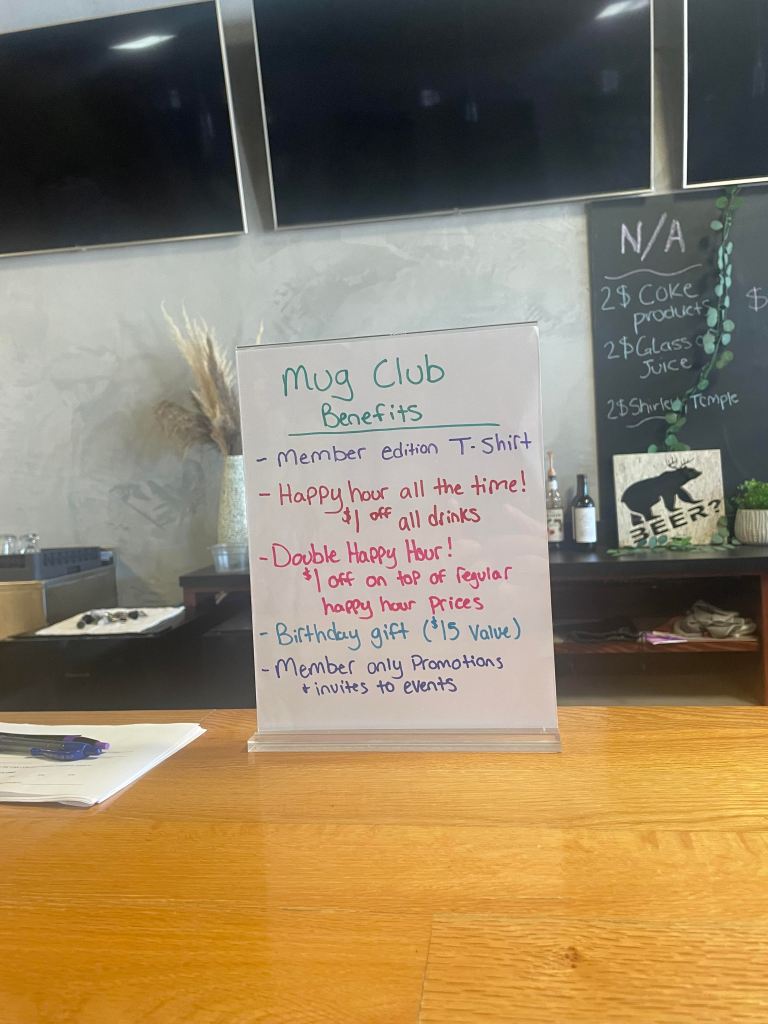 Mug Club
Benefits
- Member edition T-Shirt
- Happy hour all the time!
$1 off all drinks
- Double Happy Hour!
$1 off on top of regular
happy hour prices
- Birthday gift ($15 value)
- Member only Promotions
+ invites to events
N/A
2$ Coke
products
2$ Glass
Juice
2$ Shirley Temple
$
BEER?